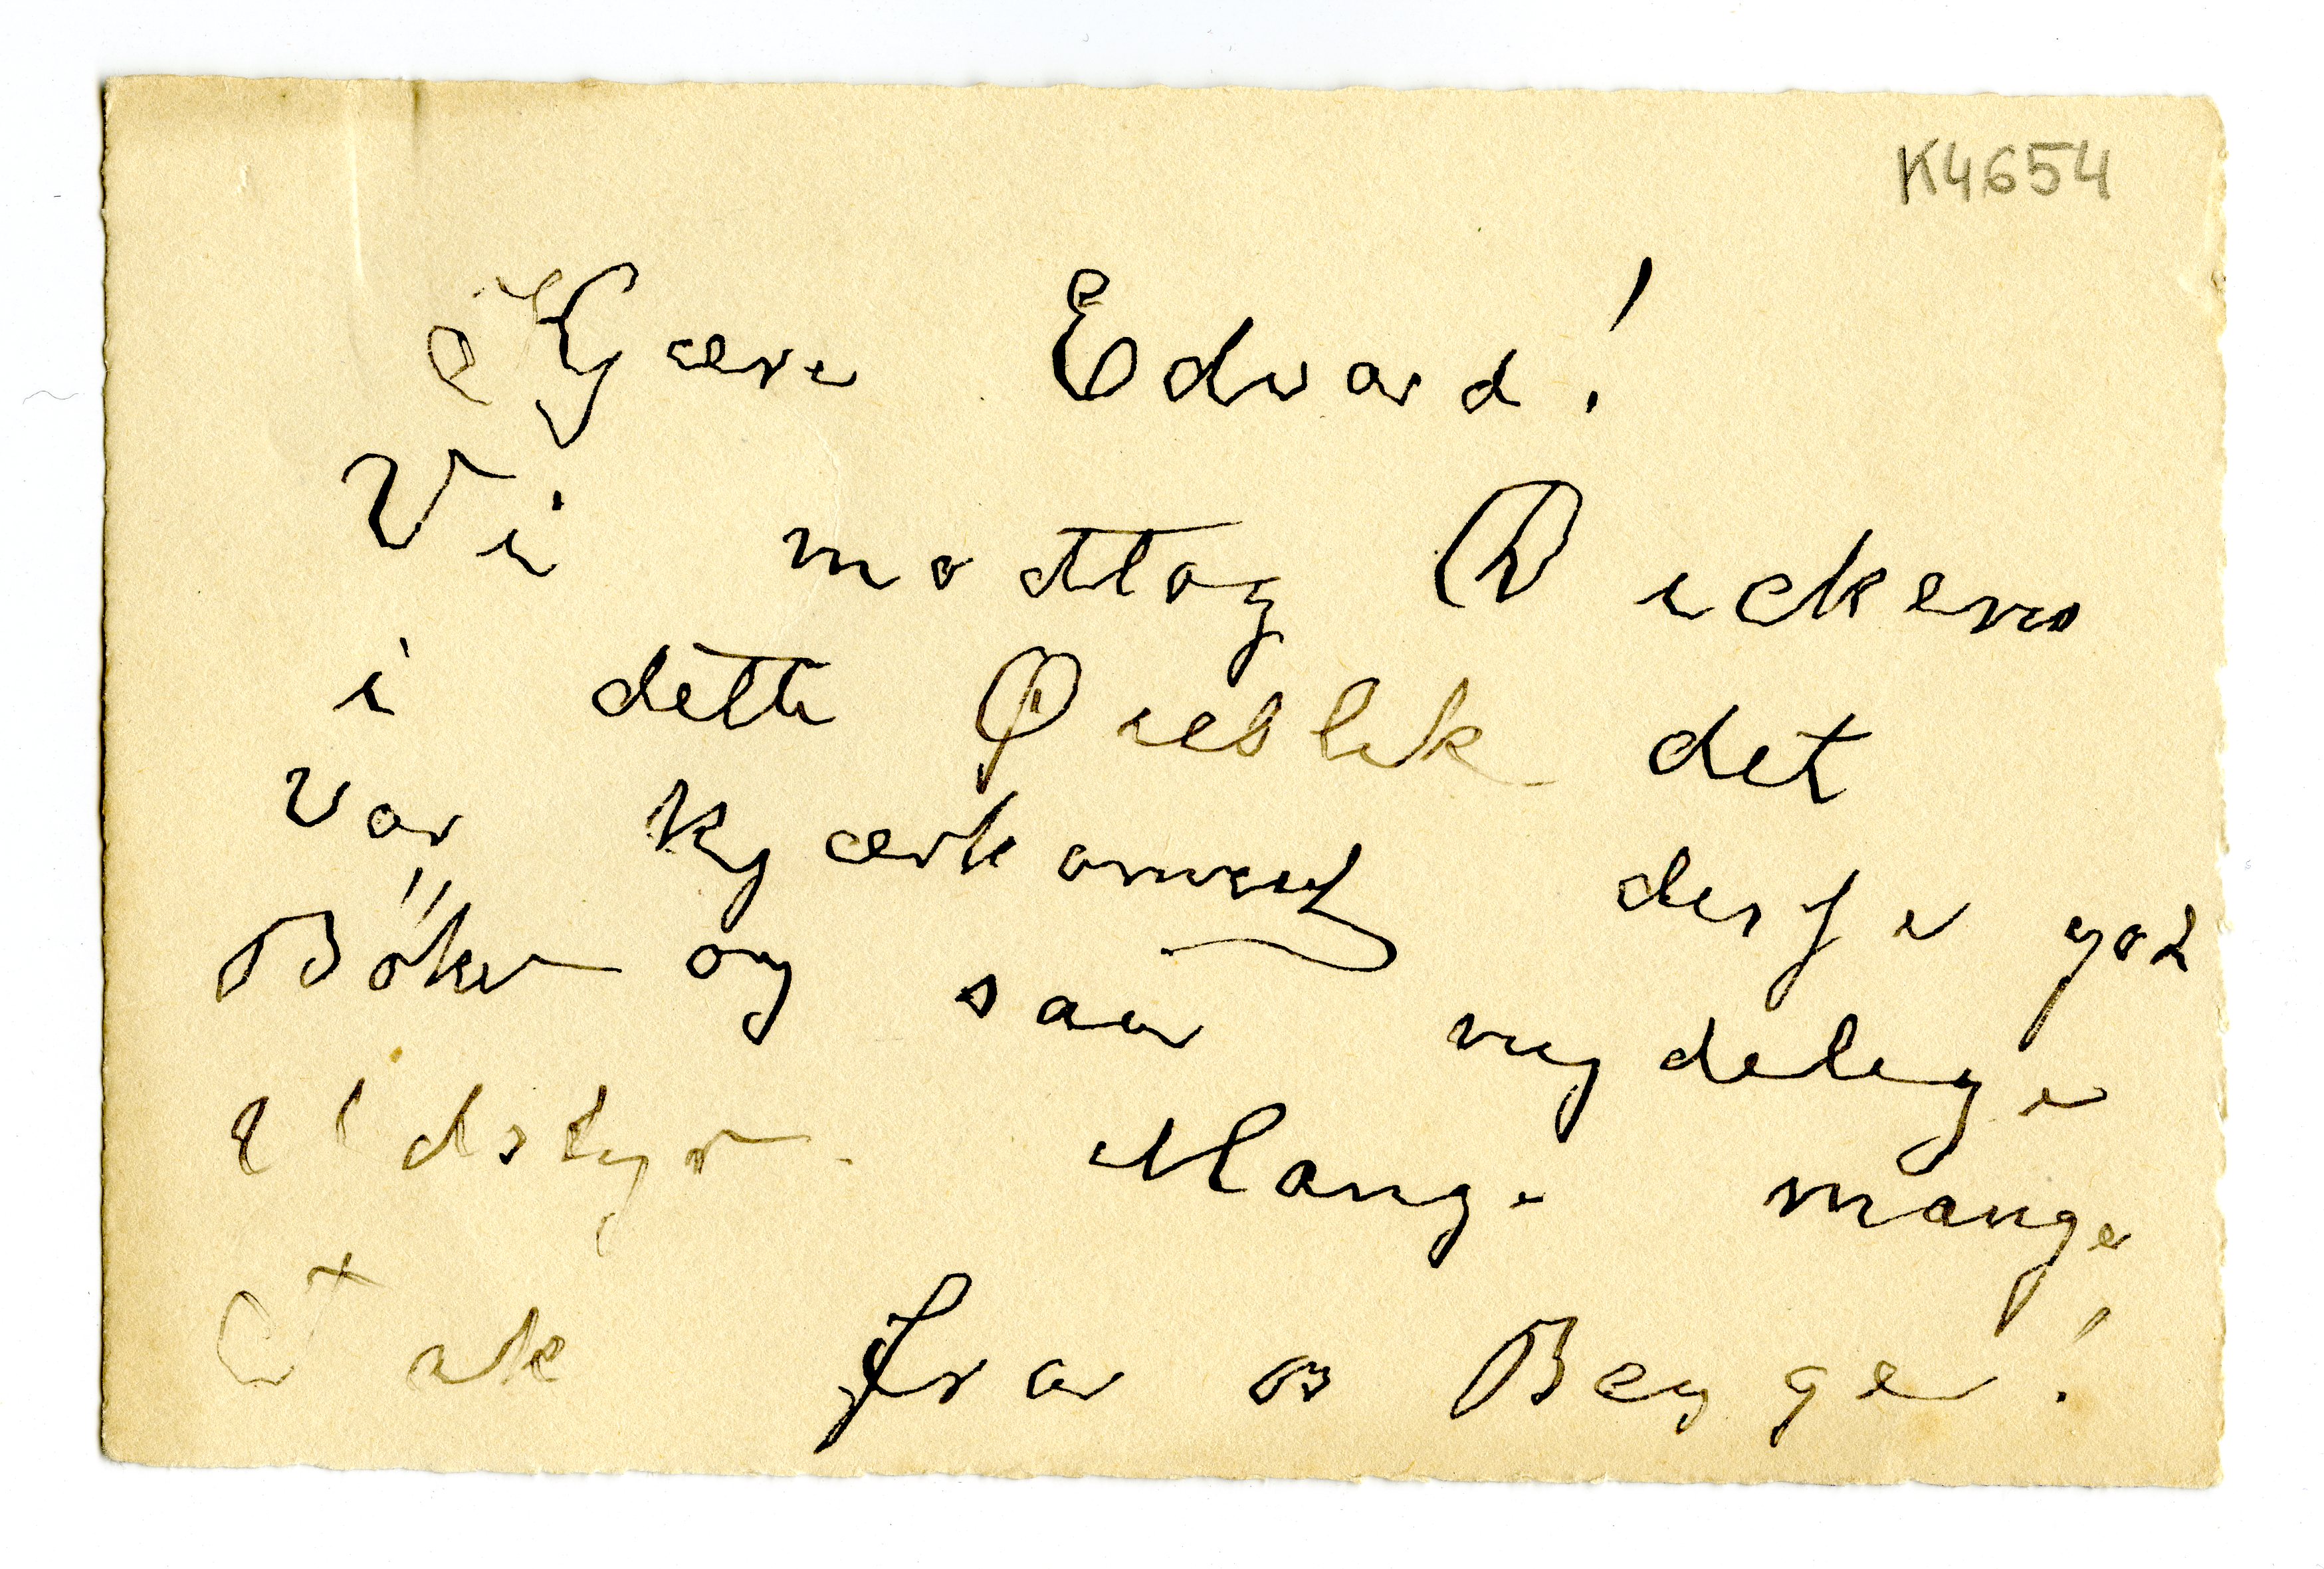 K4654
Kjære Edvard!
Vi modtog Dickens
i dette Øieblik det
var kjærkoment disse god
Böker og saa nydelige
Udstyr. Mange mange
Tak fra os Begge!